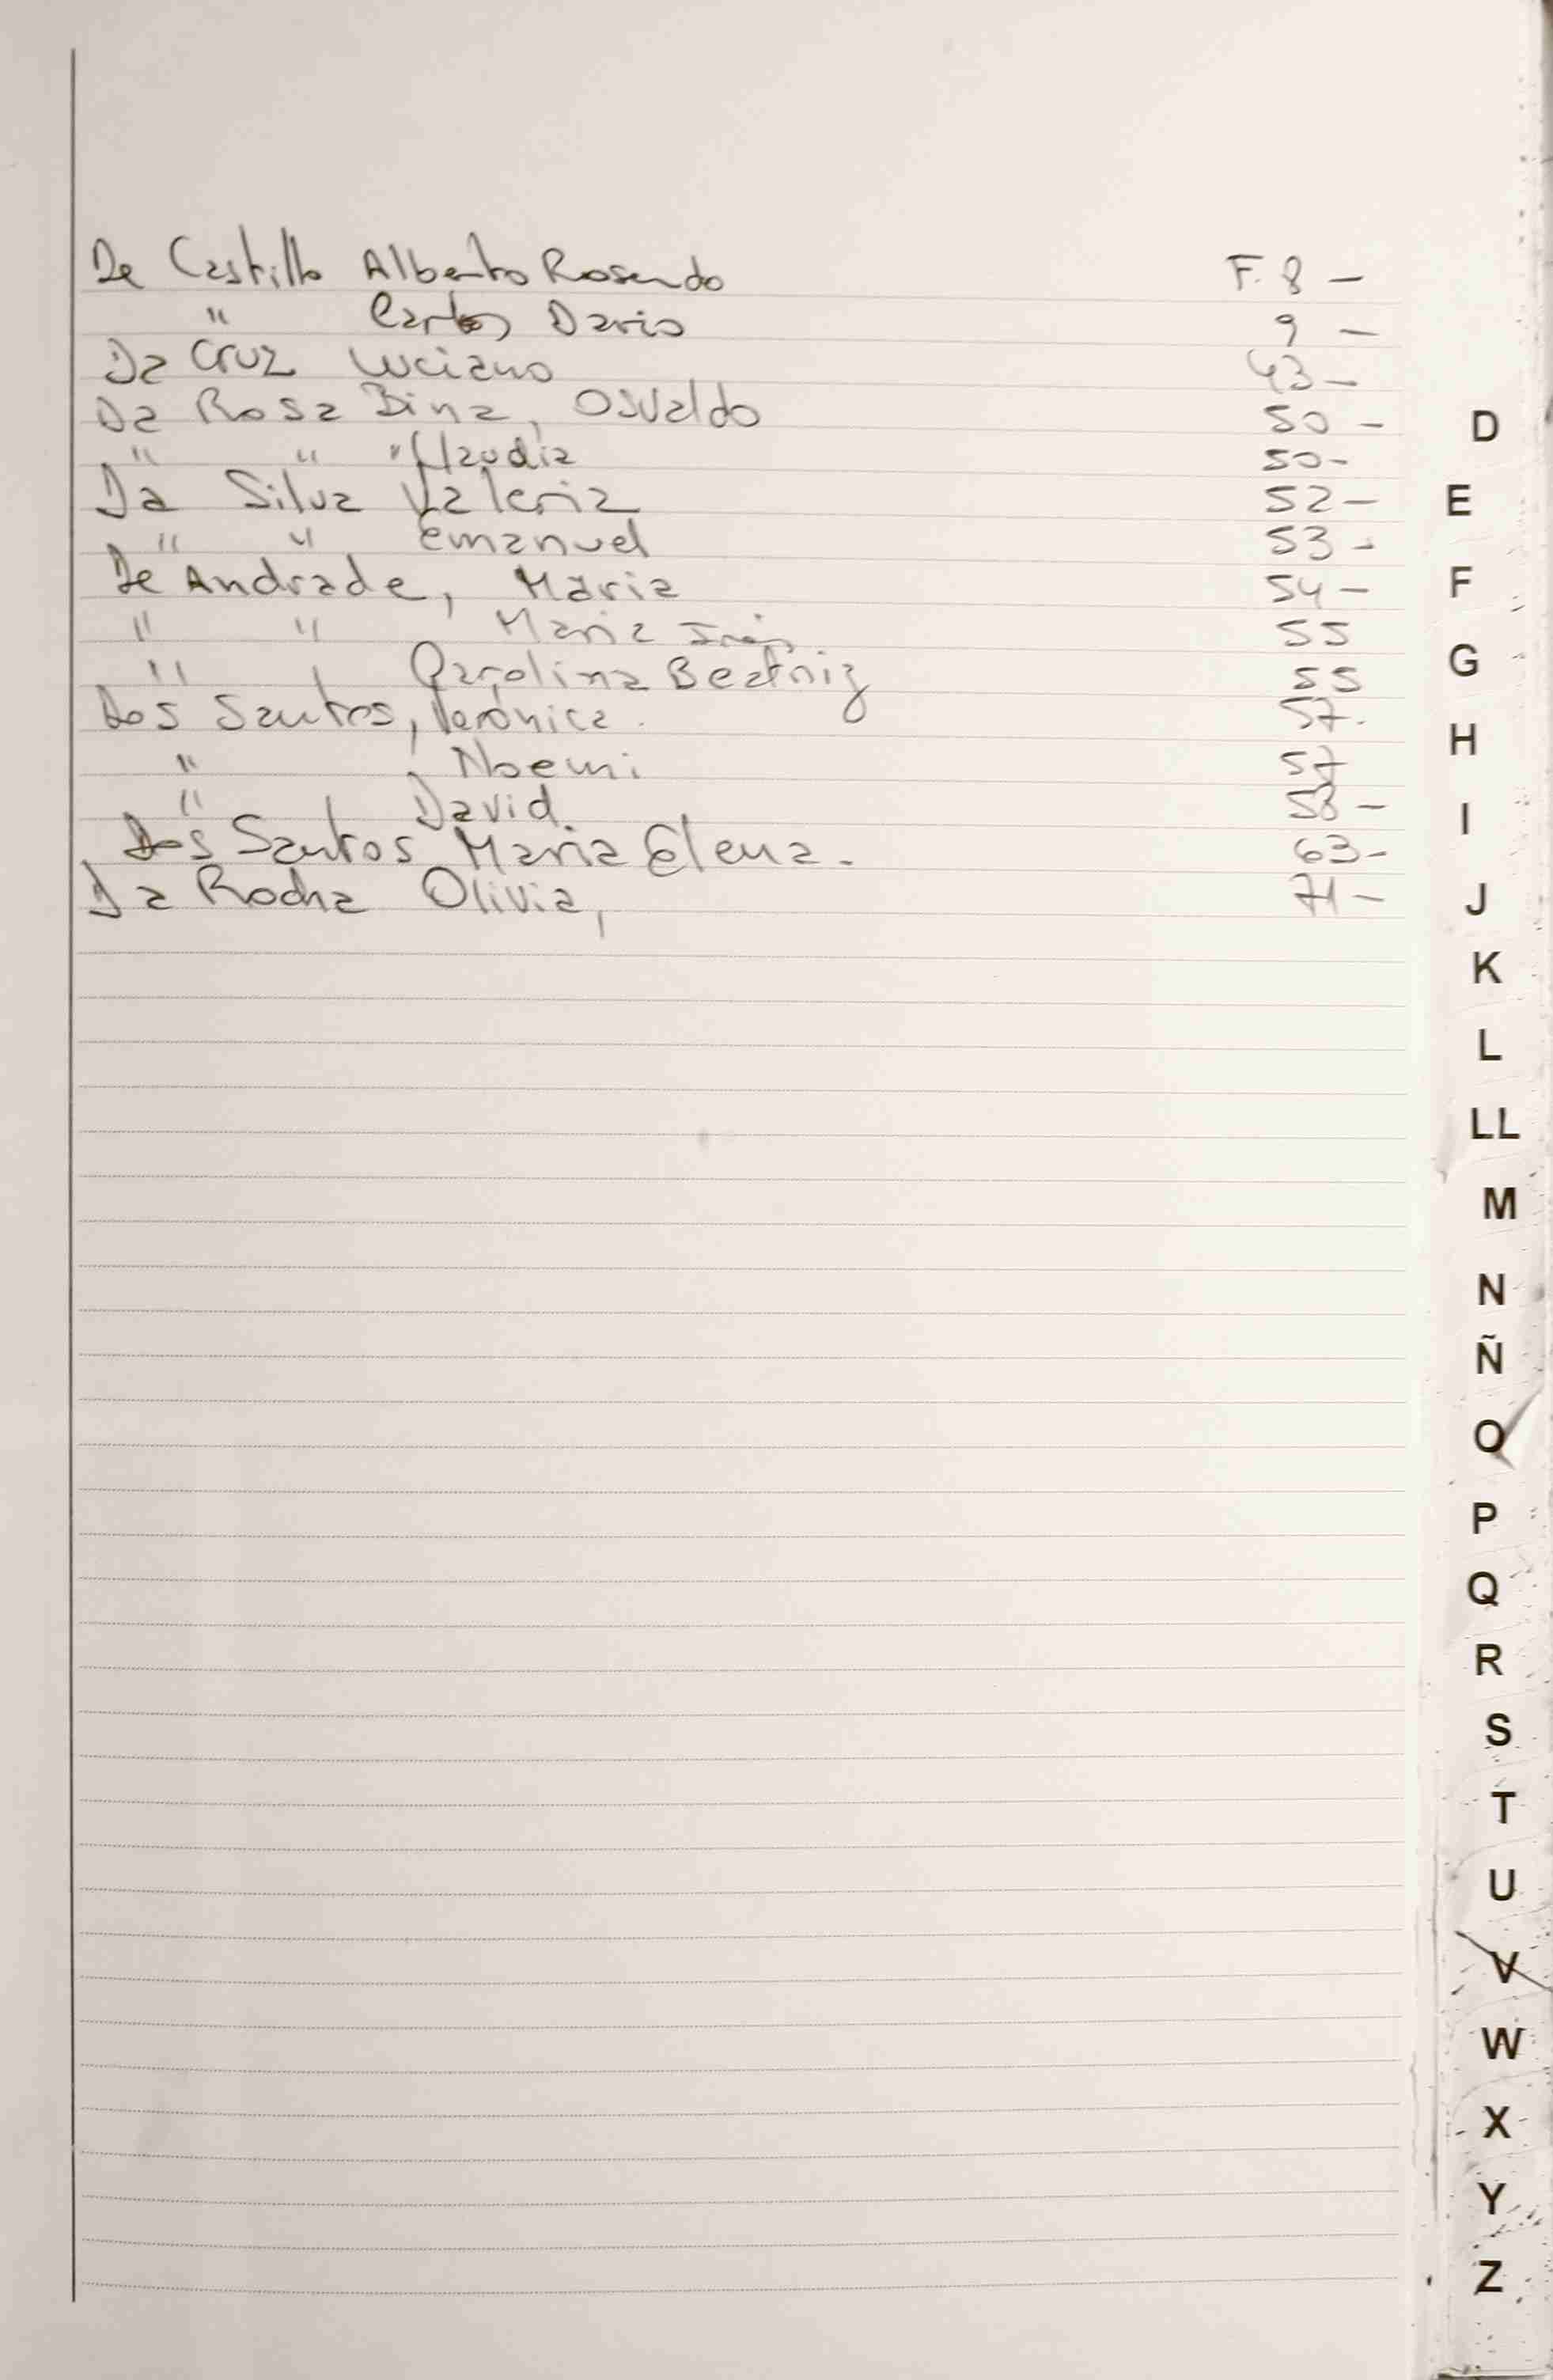 De Castillo Alberto Rosendo F. 8 -
" Carlos Dario 9 -
Da Cruz Luciano 43 -
Da Rosa Bina, Osvaldo 50 -
" " " Claudia 50 -
Da Silva Valeria 52 -
" " Emanuel 53 -
De Andrade, Maria 54 -
" " Maria Inés 55
" Carolina Beatriz 55
Dos Santos, Verónica. 57.
" , Noemi 57
" David 58 -
Dos Santos Maria Elena. 63 -
Da Rocha Olivia, 71 -
D
E
F
G
H
I
J
K
L
LL
M
N
Ñ
O
P
Q
R
S
T
U
V
W
X
Y
Z